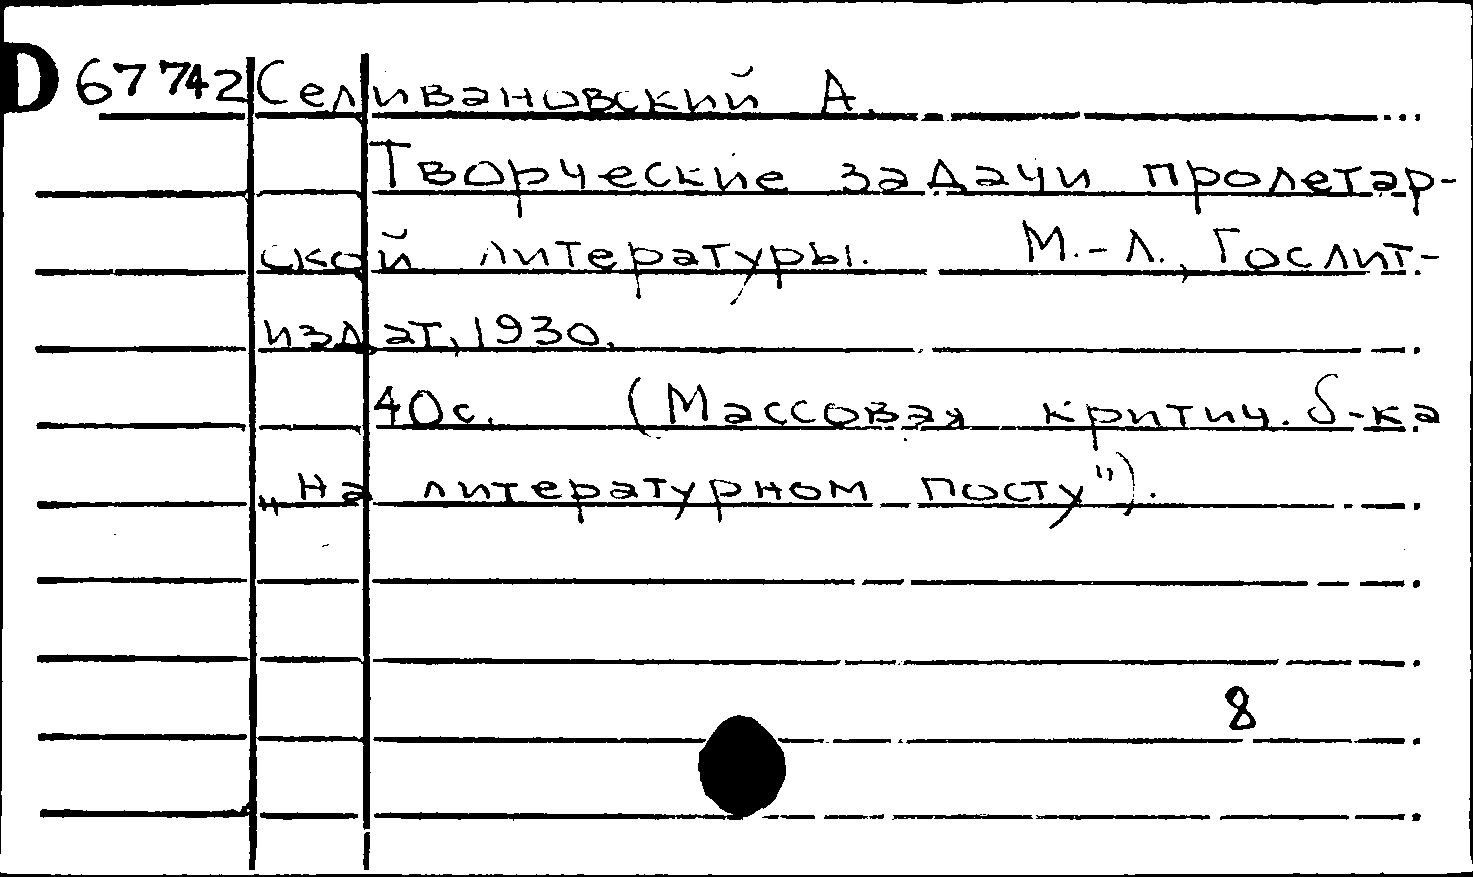 D 67742 Селивановский А.
Творческие задачи пролетар-
ской литературы. М.-Л., Гослит-
издат, 1930.
40с. (Массовая критич. б-ка
„На литературном посту").
8